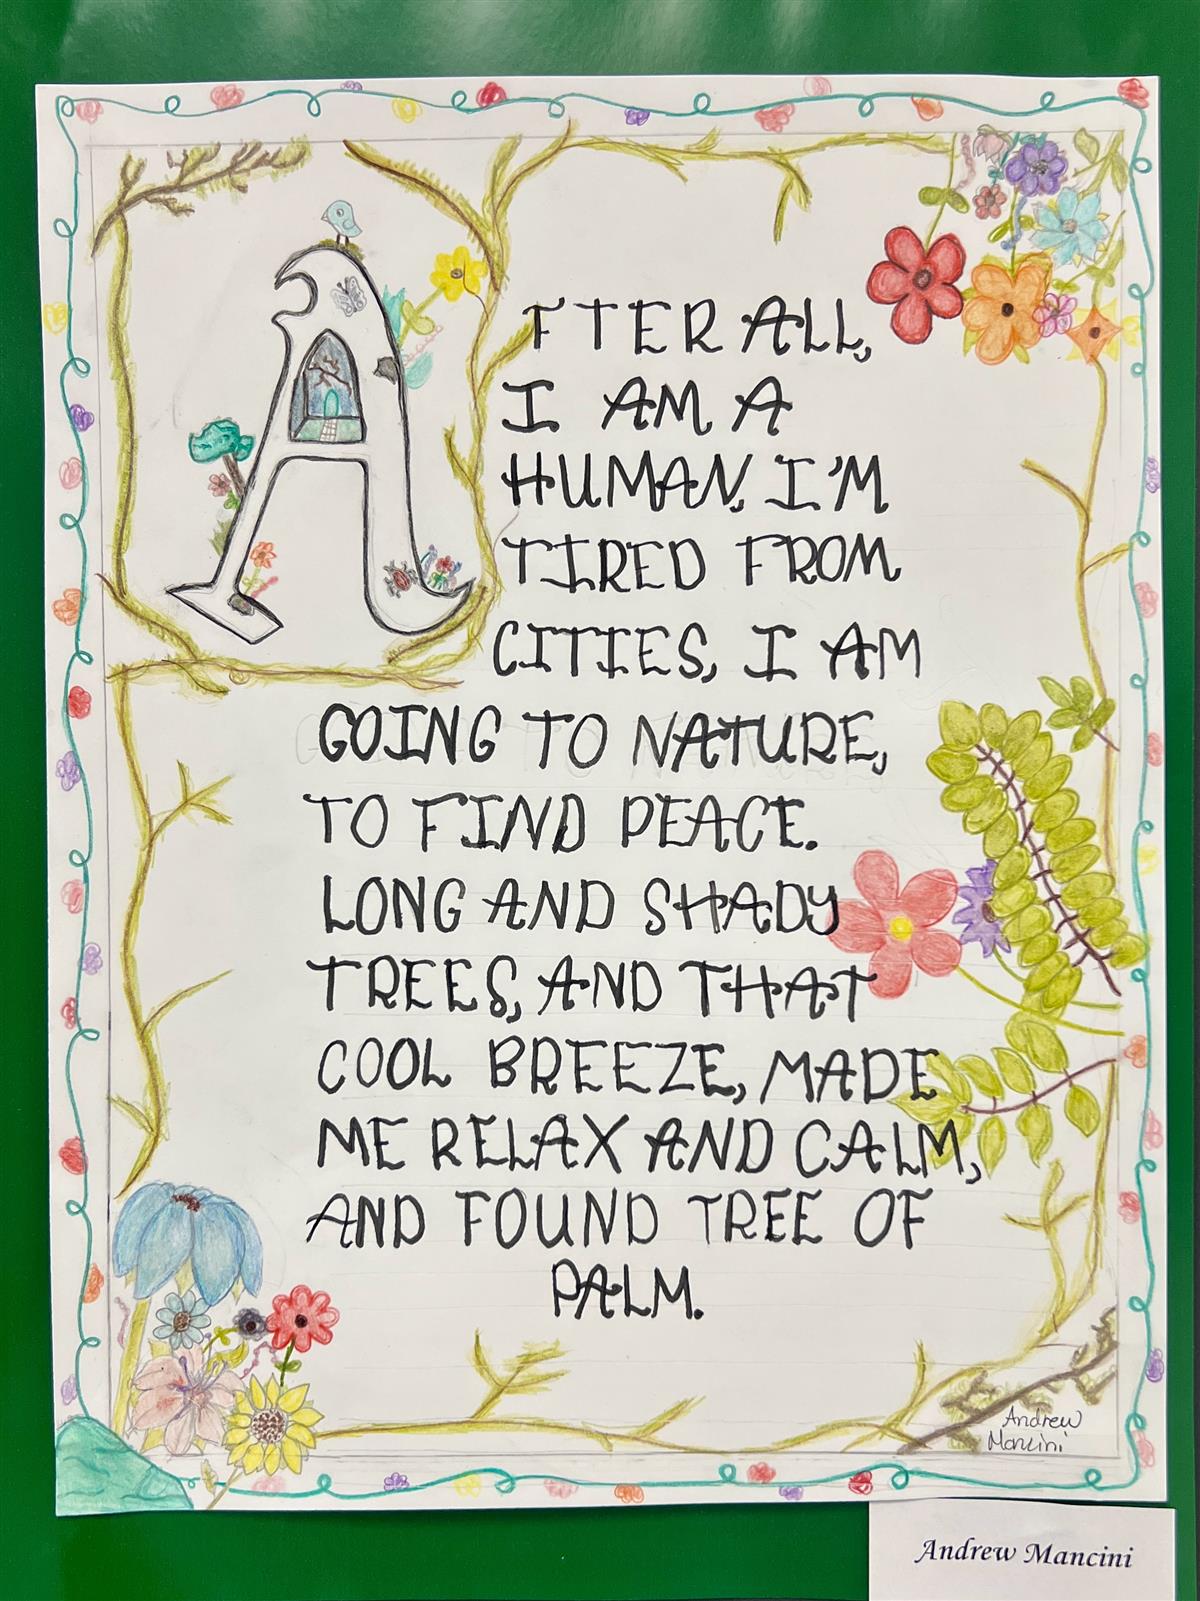 AFTER ALL,
I AM A
HUMAN, I'M
TIRED FROM
CITIES, I AM
GOING TO NATURE,
TO FIND PEACE.
LONG AND SHADY
TREES, AND THAT
COOL BREEZE, MADE
ME RELAX AND CALM,
AND FOUND TREE OF
PALM.
Andrew
Mancini
Andrew Mancini